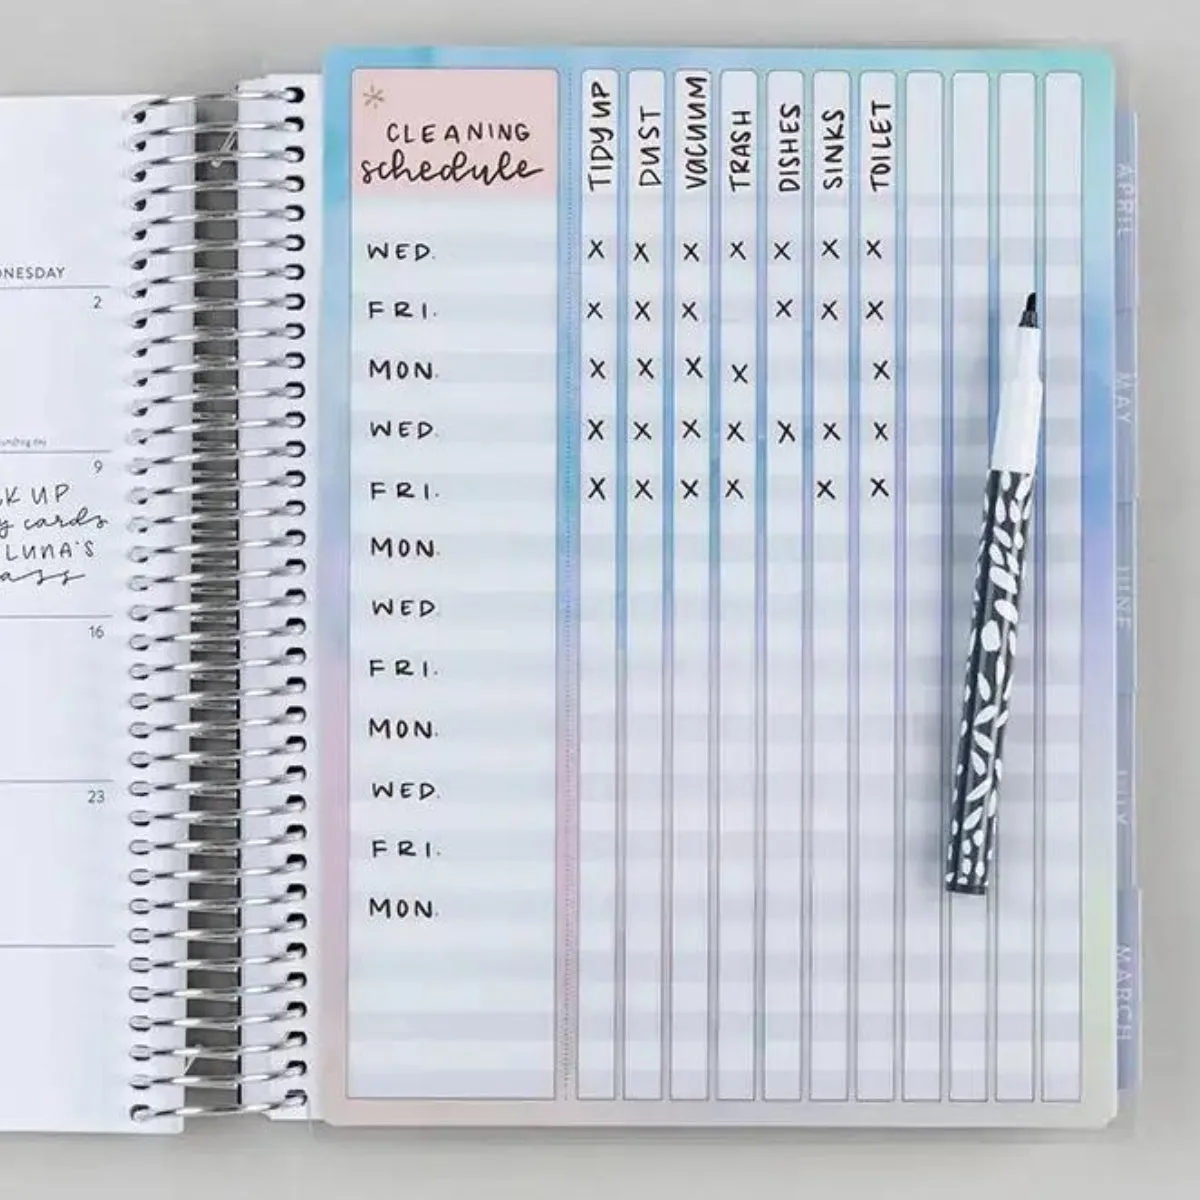 NESDAY
2
9
K UP
y cards
LUNA'S
ass
16
23
* CLEANING
schedule
TIDY UP
DUST
VACUUM
TRASH
DISHES
SINKS
TOILET
WED. X X X X X X X
FRI. X X X X X X
MON. X X X X X
WED. X X X X X X X
FRI. X X X X X X
MON.
WED.
FRI.
MON.
WED.
FRI.
MON.
APRIL
MAY
JUNE
JULY
MARCH